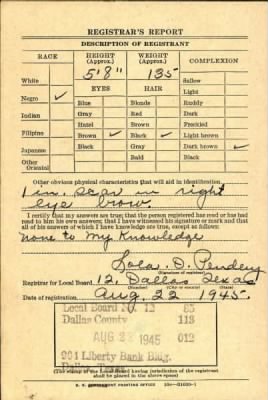 REGISTRAR'S REPORT
DESCRIPTION OF REGISTRANT
RACE
HEIGHT (Approx.)
WEIGHT (Approx.)
COMPLEXION
5'8"
135
White
Sallow
EYES
HAIR
Light
Negro ✓
Blue
Blonde
Ruddy
Gray
Red
Dark
Indian
Hazel
Brown
Freckled
Filipino
Brown ✓
Black ✓
Light brown
Japanese
Black
Gray
Dark brown ✓
Other Oriental
Bald
Black
Other obvious physical characteristics that will aid in identification
1 in. scar on right
eye brow.
I certify that my answers are true; that the person registered has read or has had
read to him his own answers; that I have witnessed his signature or mark and that
all of his answers of which I have knowledge are true, except as follows:
None to My Knowledge
Lola D.
(Signature of registrar)
Registrar for Local Board 12, Dallas Texas
(Number) (City or county) (State)
Date of registration Aug. 22 1945.
Local Board No. 12 85
Dallas County 113
AUG 22 1945 012
901 Liberty Bank Bldg.
Dallas, Texas
(The stamp of the Local Board having jurisdiction of the registrant
shall be placed in the above space)
U. S. GOVERNMENT PRINTING OFFICE